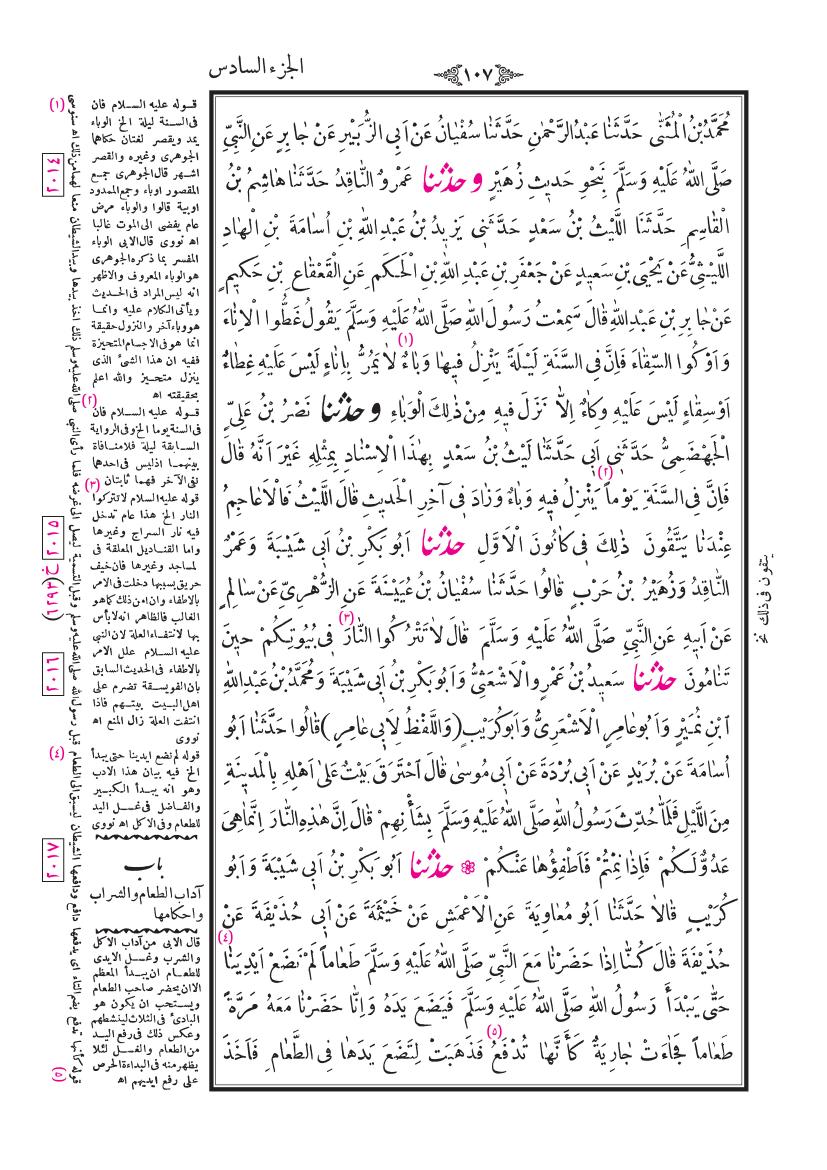 الجزء السادس
١٠٧
مُحَمَّدُ بْنُ الْمُثَنّٰى حَدَّثَنَا عَبْدُ الرَّحْمٰنِ حَدَّثَنَا سُفْيَانُ عَنْ اَبِى الزُّبَيْرِ عَنْ جَابِرٍ عَنِ النَّبِىِّ
صَلَّى اللّٰهُ عَلَيْهِ وَسَلَّمَ بِنَحْوِ حَديثِ زُهَيْرٍ وحدثنا عَمْرٌو النَّاقِدُ حَدَّثَنَا هَاشِمُ بْنُ
الْقَاسِمِ حَدَّثَنَا اللَّيْثُ بْنُ سَعْدٍ حَدَّثَنى يَزيدُ بْنُ عَبْدِ اللّٰهِ بْنِ اُسَامَةَ بْنِ الْهَادِ
اللَّيْثِىُّ عَنْ يَحْيَى بْنِ سَعيدٍ عَنْ جَعْفَرِ بْنِ عَبْدِ اللّٰهِ بْنِ الْحَكَمِ عَنِ الْقَعْقَاعِ بْنِ حَكيمٍ
عَنْ جَابِرِ بْنِ عَبْدِ اللّٰهِ قَالَ سَمِعْتُ رَسُولَ اللّٰهِ صَلَّى اللّٰهُ عَلَيْهِ وَسَلَّمَ يَقُولُ غَطُّوا الْاِنَاءَ
وَاَوْكُوا السِّقَاءَ فَاِنَّ فِى السَّنَةِ لَيْلَةً يَنْزِلُ فيهَا وَبَاءٌ (١) لَا يَمُرُّ بِاِنَاءٍ لَيْسَ عَلَيْهِ غِطَاءٌ
اَوْ سِقَاءٍ لَيْسَ عَلَيْهِ وِكَاءٌ اِلَّا نَزَلَ فيهِ مِنْ ذٰلِكَ الْوَبَاءِ وحدثنا نَصْرُ بْنُ عَلِىٍّ
الْجَهْضَمِىُّ حَدَّثَنى اَبى حَدَّثَنَا لَيْثُ بْنُ سَعْدٍ بِهٰذَا الْاِسْنَادِ بِمِثْلِهِ غَيْرَ اَنَّهُ قَالَ
فَاِنَّ فِى السَّنَةِ يَوْماً (٢) يَنْزِلُ فيهِ وَبَاءٌ وَزَادَ فى آخِرِ الْحَديثِ قَالَ اللَّيْثُ فَالْاَعَاجِمُ
عِنْدَنَا يَتَّقُونَ ذٰلِكَ فى كَانُونَ الْاَوَّلِ حدثنا اَبُو بَكْرِ بْنُ اَبى شَيْبَةَ وَعَمْرٌو
النَّاقِدُ وَزُهَيْرُ بْنُ حَرْبٍ قَالُوا حَدَّثَنَا سُفْيَانُ بْنُ عُيَيْنَةَ عَنِ الزُّهْرِىِّ عَنْ سَالِمٍ
عَنْ اَبيهِ عَنِ النَّبِىِّ صَلَّى اللّٰهُ عَلَيْهِ وَسَلَّمَ قَالَ لَا تَتْرُكُوا النَّارَ (٣) فى بُيُوتِكُمْ حينَ
تَنَامُونَ حدثنا سَعيدُ بْنُ عَمْرٍو الْاَشْعَثِىُّ وَاَبُو بَكْرِ بْنُ اَبى شَيْبَةَ وَمُحَمَّدُ بْنُ عَبْدِ اللّٰهِ
ابْنِ نُمَيْرٍ وَاَبُو عَامِرٍ الْاَشْعَرِىُّ وَاَبُو كُرَيْبٍ (وَاللَّفْظُ لِاَبى عَامِرٍ) قَالُوا حَدَّثَنَا اَبُو
اُسَامَةَ عَنْ بُرَيْدٍ عَنْ اَبى بُرْدَةَ عَنْ اَبى مُوسٰى قَالَ احْتَرَقَ بَيْتٌ عَلٰى اَهْلِهِ بِالْمَدينَةِ
مِنَ اللَّيْلِ فَلَمَّا حُدِّثَ رَسُولُ اللّٰهِ صَلَّى اللّٰهُ عَلَيْهِ وَسَلَّمَ بِشَأْنِهِمْ قَالَ اِنَّ هٰذِهِ النَّارَ اِنَّمَا هِىَ
عَدُوٌّ لَكُمْ فَاِذَا نِمْتُمْ فَاَطْفِؤُهَا عَنْكُمْ حدثنا اَبُو بَكْرِ بْنُ اَبى شَيْبَةَ وَاَبُو
كُرَيْبٍ قَالَا حَدَّثَنَا اَبُو مُعَاوِيَةَ عَنِ الْاَعْمَشِ عَنْ خَيْثَمَةَ عَنْ اَبى حُذَيْفَةَ عَنْ
حُذَيْفَةَ قَالَ كُنَّا اِذَا حَضَرْنَا مَعَ النَّبِىِّ صَلَّى اللّٰهُ عَلَيْهِ وَسَلَّمَ طَعَاماً لَمْ نَضَعْ اَيْدِيَنَا (٤)
حَتّٰى يَبْدَأَ رَسُولُ اللّٰهِ صَلَّى اللّٰهُ عَلَيْهِ وَسَلَّمَ فَيَضَعَ يَدَهُ وَاِنَّا حَضَرْنَا مَعَهُ مَرَّةً
طَعَاماً فَجَاءَتْ جَارِيَةٌ كَاَنَّهَا تُدْفَعُ (٥) فَذَهَبَتْ لِتَضَعَ يَدَهَا فِى الطَّعَامِ فَاَخَذَ
يتقون فى ذلك نخ
(١)
قوله عليه السلام فان
فى السنة ليلة الخ الوباء
يمد ويقصر لغتان حكاهما
الجوهرى وغيره والقصر
اشهر قال الجوهرى جمع
المقصور اوباء وجمع الممدود
اوبية قالوا والوباء مرض
عام يفضى الى الموت غالبا
اه نووى قال الابى الوباء
المفسر بما ذكره الجوهرى
هو الوباء المعروف والاظهر
انه ليس المراد فى الحديث
ويأتى الكلام عليه وانما
هو وباء آخر والنزول حقيقة
انما هو فى الاجسام المتحيزة
ففيه ان هذا الشىء الذى
ينزل متحيز والله اعلم
بحقيقته اه
(٢)
قوله عليه السلام فان
فى السنة يوما الخ وفى الرواية
السابقة ليلة فلا منافاة
بينهما اذ ليس فى احدهما
نفى الآخر فهما ثابتان
(٣)
قوله عليه السلام لا تتركوا
النار الخ هذا عام تدخل
فيه نار السراج وغيرها
واما القناديل المعلقة فى
لمساجد وغيرها فان خيف
حريق بسببها دخلت فى الامر
بالاطفاء وان امن ذلك كما هو
الغالب فالظاهر انه لا بأس
بها لانتفاء العلة لان النبى
عليه السلام علل الامر
بالاطفاء فى الحديث السابق
بان الفويسقة تضرم على
اهل البيت بيتهم فاذا
انتفت العلة زال المنع اه
نووى
(٤)
قوله لم نضع ايدينا حتى يبدأ
الخ فيه بيان هذا الادب
وهو انه يبدأ الكبير
والفاضل فى غسل اليد
للطعام وفى الاكل اه نووى
باب
آداب الطعام والشراب
واحكامها
قال الابى من آداب الاكل
والشرب وغسل الايدى
للطعام ان يبدأ المعظم
الا ان يحضر صاحب الطعام
ويستحب ان يكون هو
البادئ فى الثلاث لينشطهم
وعكس ذلك فى رفع اليد
من الطعام والغسل لئلا
يظهر منه فى البداءة الحرص
على رفع ايديهم اه
(٥)
٢٠١٤
٢٠١٥
٢٠١٦